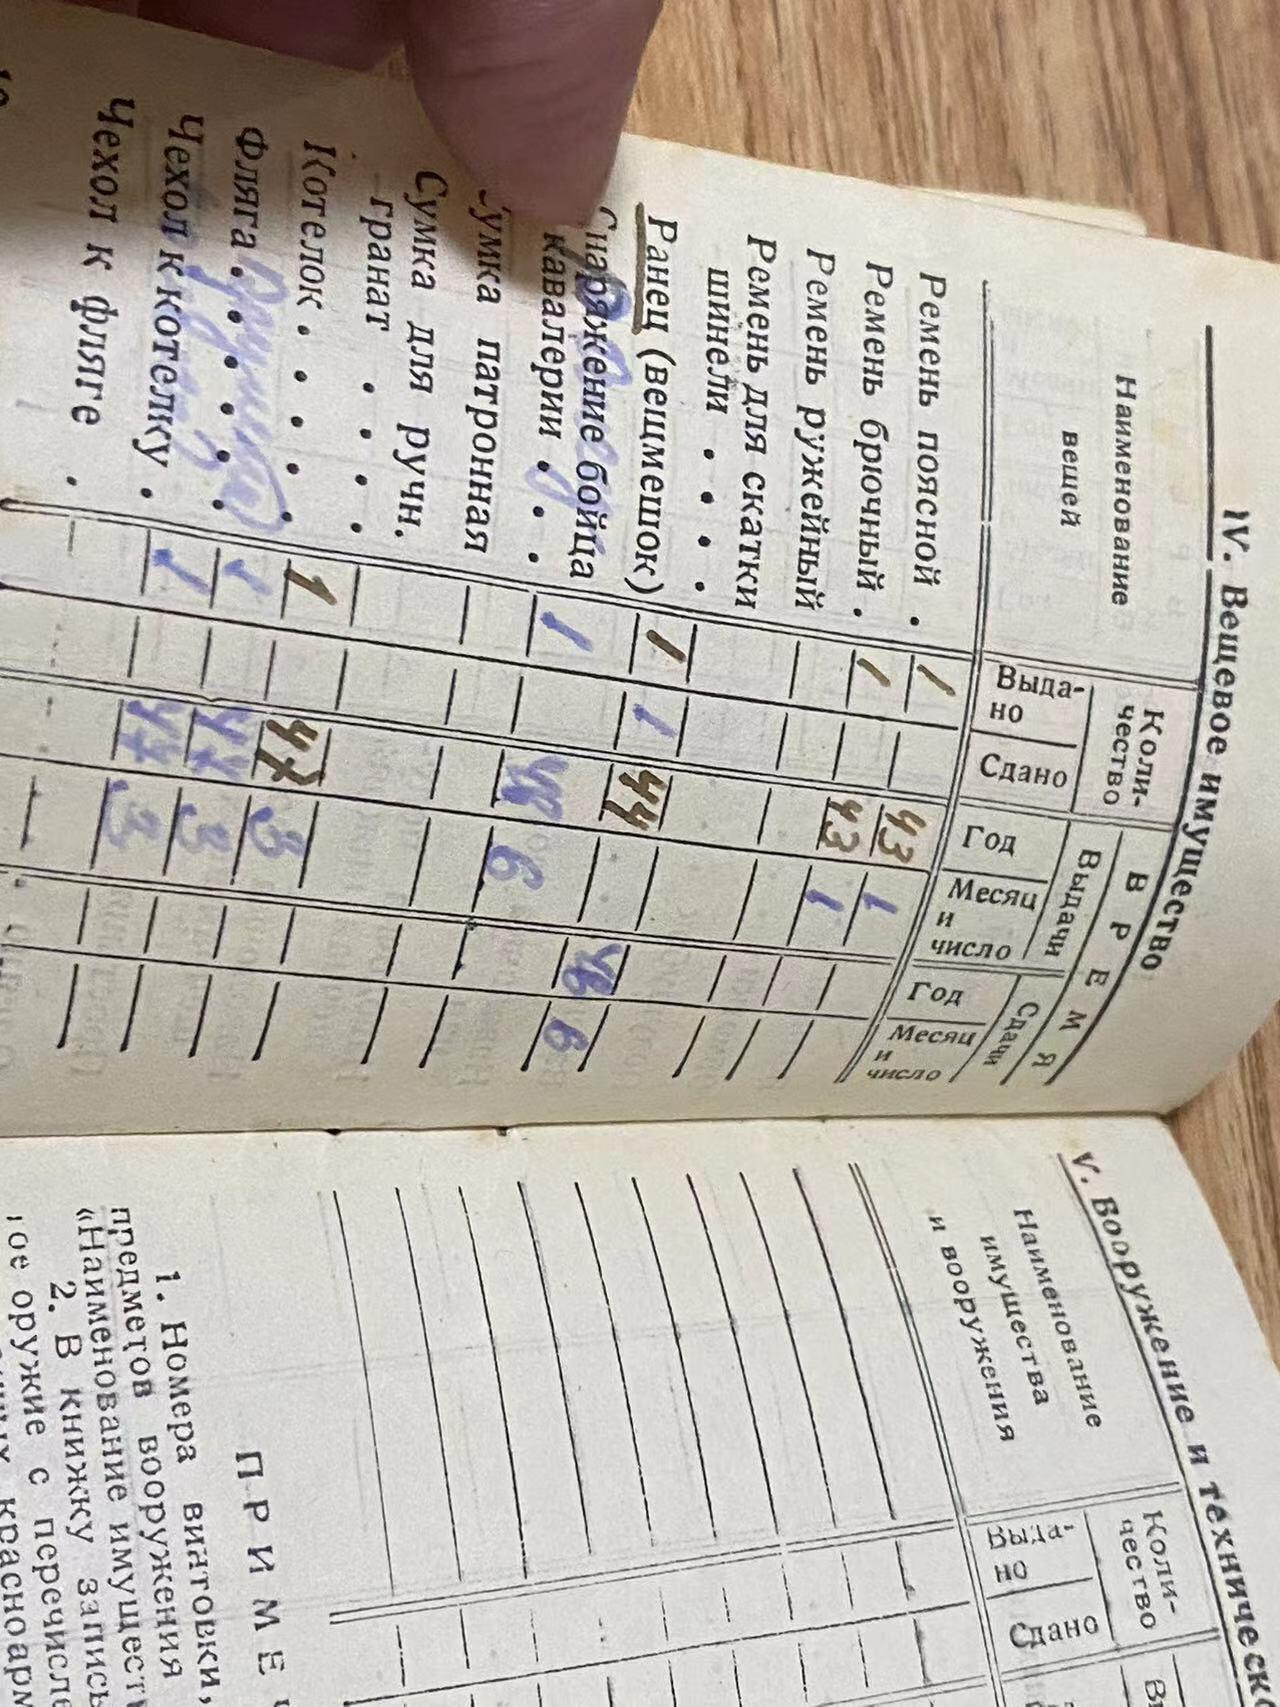 IV. Вещевое имущество
Наименование
вещей
Коли-
чество
ВРЕМЯ
Выдачи
Сдачи
Выда-
но
Сдано
Год
Месяц
и
число
Год
Месяц
и
число
Ремень поясной . 1 43 1
Ремень брючный . 1 43 1
Ремень ружейный
Ремень для скатки
шинели . . . .
Ранец (вещмешок) 1 1 44 46 6
Снаряжение бойца
кавалерии . . . 1 46 6
Сумка патронная
Сумка для ручн.
гранат . . . .
Котелок . . . . . 1 47 3
Фляга . . . . . . 1 47 3
Чехол к котелку . 1 47 3
Чехол к фляге .
V. Вооружение и техническ
Наименование
имущества
и вооружения
Коли-
чество
Выда-
но
Сдано
ПРИМЕЧ
1. Номера винтовки,
предметов вооружения
«Наименование имуществ
2. В книжку запись
ое оружие с перечисле
красноарм